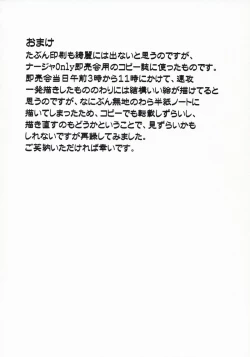 おまけ
たぶん印刷も綺麗には出ないと思うのですが、
ナージャOnly即売会用のコピー誌に使ったものです。
即売会当日午前3時から11時にかけて、速攻
一発描きしたもののわりには結構いい絵が描けてると
思うのですが、なにぶん無地のわら半紙ノートに
描いてしまったため、コピーでも転載しずらいし、
描き直すのもどうかということで、見ずらいかも
しれないですが再録してみました。
ご笑納いただければ幸いです。